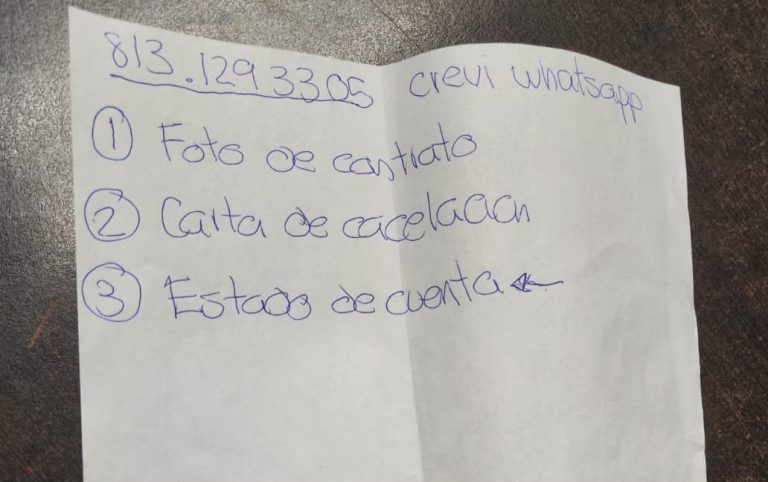 813.129 3305 crevi whatsapp
1 Foto de contrato
2 Carta de cacelacion
3 Estado de cuenta